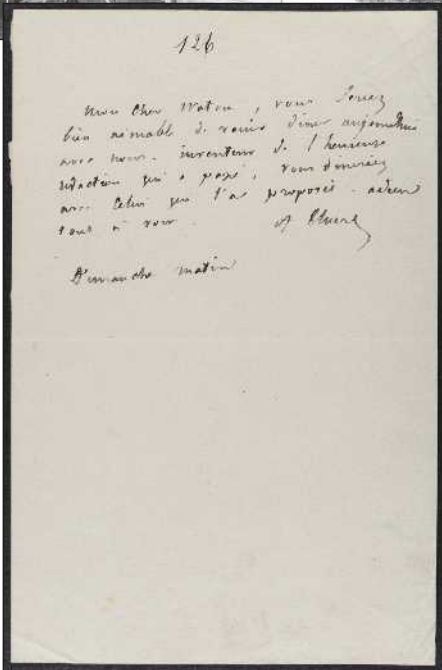 126
Mon cher Watou, vous serez
bien aimable de venir diner aujourdhui
avec nous. inventeur de l'heureuse
rédaction qui a passé, vous dineriez
avec celui qui l'a proposée. adieu
tout à vous. A
Dimanche matin